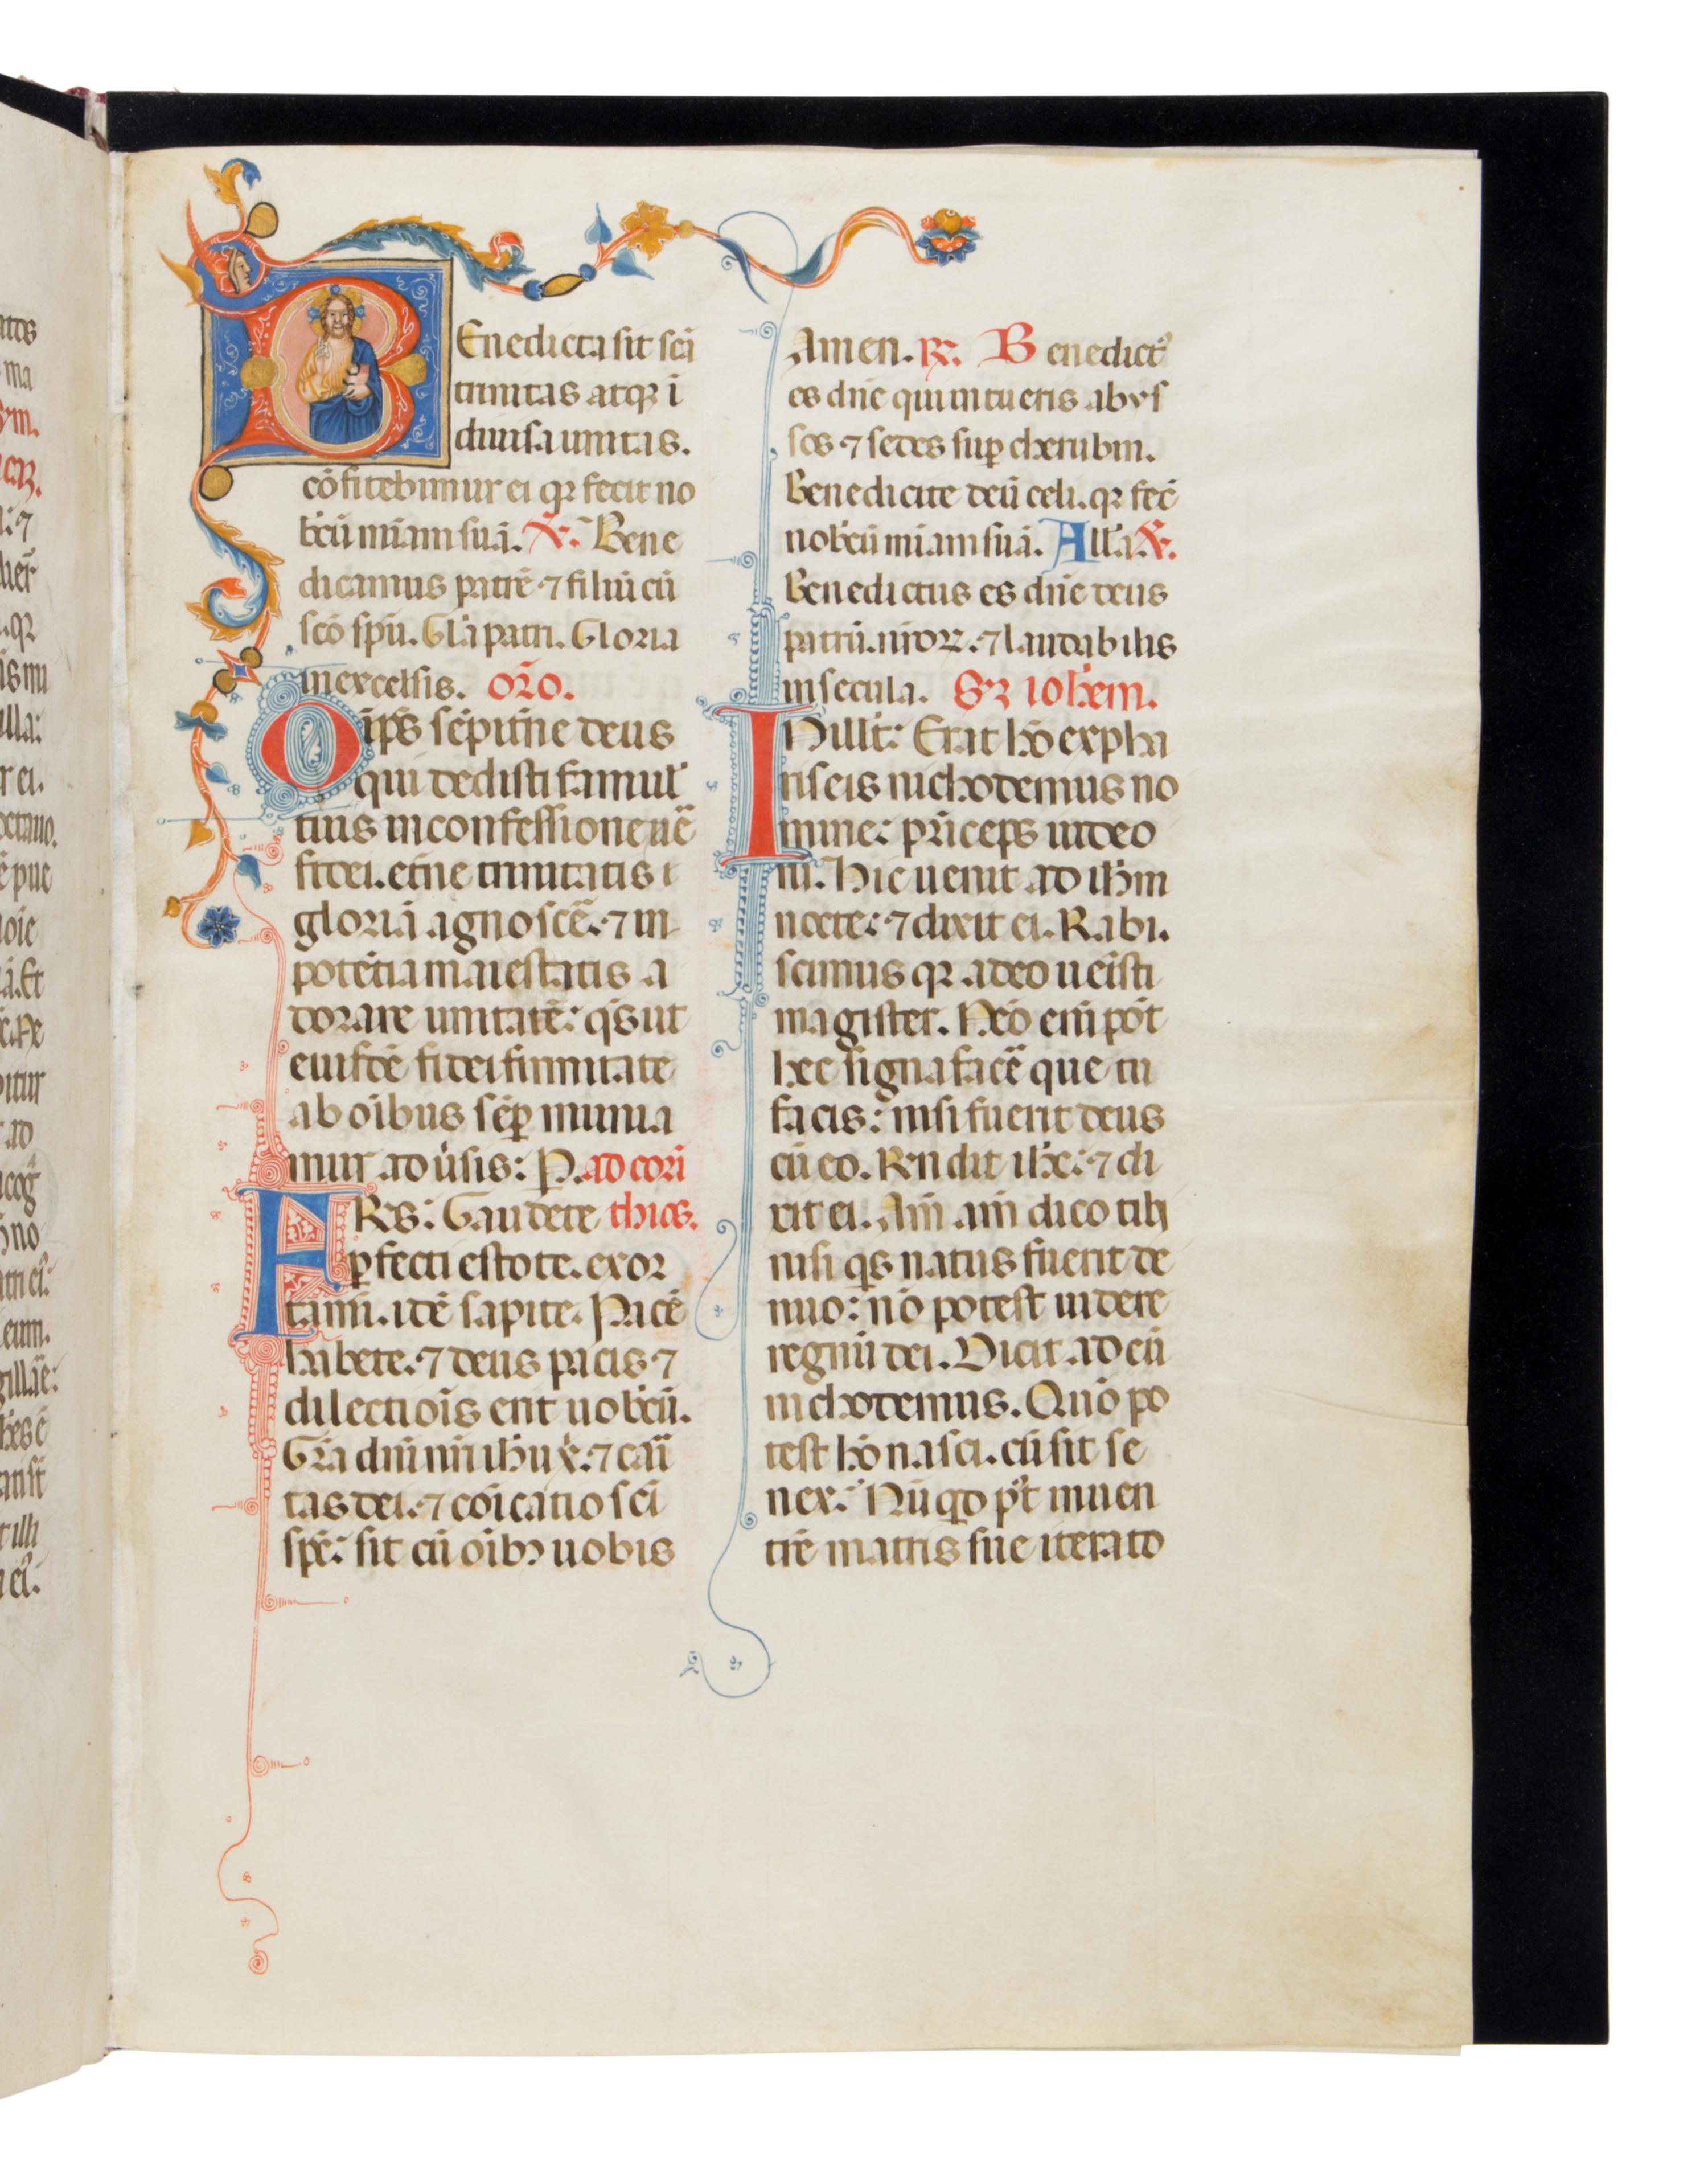 BEnedicta sit scā
trinitas atqȝ i
diuisa unitas.
cōfitebimur ei qꝛ fecit no
bcū miam suā. ℣. Bene
dicamus patrē ⁊ filiū cū
scō spū. Gl'a patri. Gloria
in excelsis. orō.
Oīps sēpitne deus
qui dedisti famul'
tuis in confessione uē
fidei. etne trinitatis
gloriā agnoscē. ⁊ in
potētia maiestatis a
dorare unitatē: qs ut
eiusdē fidei firmitate
ab oībus sēp munia
mur aduīsis: P. ad cori
FRs: Gaudete thios.
ꝑfecti estote. exor
tami. idē sapite. Pacē
habete. ⁊ deus pacis ⁊
dilectiois erit uobcū.
Gr̄a dni nri ihu x̄. ⁊ cari
tas dei. ⁊ cōicatio sci
spc: sit cū oībꝫ uobis
Amen. ℟. Benedict'
es dnē qui intueris abys
sos ⁊ sedes suꝑ cherubin.
Benedicite deū celi. qꝛ fec̄
nobcū miam suā. All'a. ℣.
Benedictus es dnē deus
patrū. nroꝝ. ⁊ laudabilis
in secula. S'ꝫ iohem.
IN illt: Erat hō ex pha
riseis nichodemus no
mine: prīceps iudeo
rū. Hic uenit ad ihm
nocte: ⁊ dixit ei. Rabi.
scimus qꝛ a deo ueisti
magister. Neō enī pot̄
hec signa facē que tu
facis: nisi fuerit deus
cū eo. Rn̄dit ihc: ⁊ di
xit ei. Am̄ am̄ dico tibi
nisi qs natus fuerit de
nuo: nō potest uidere
regnū dei. Dicit ad eū
nichodemus. Quō po
test hō nasci. cū sit se
nex: Nūqd pt in uen
trē matris sue iterato